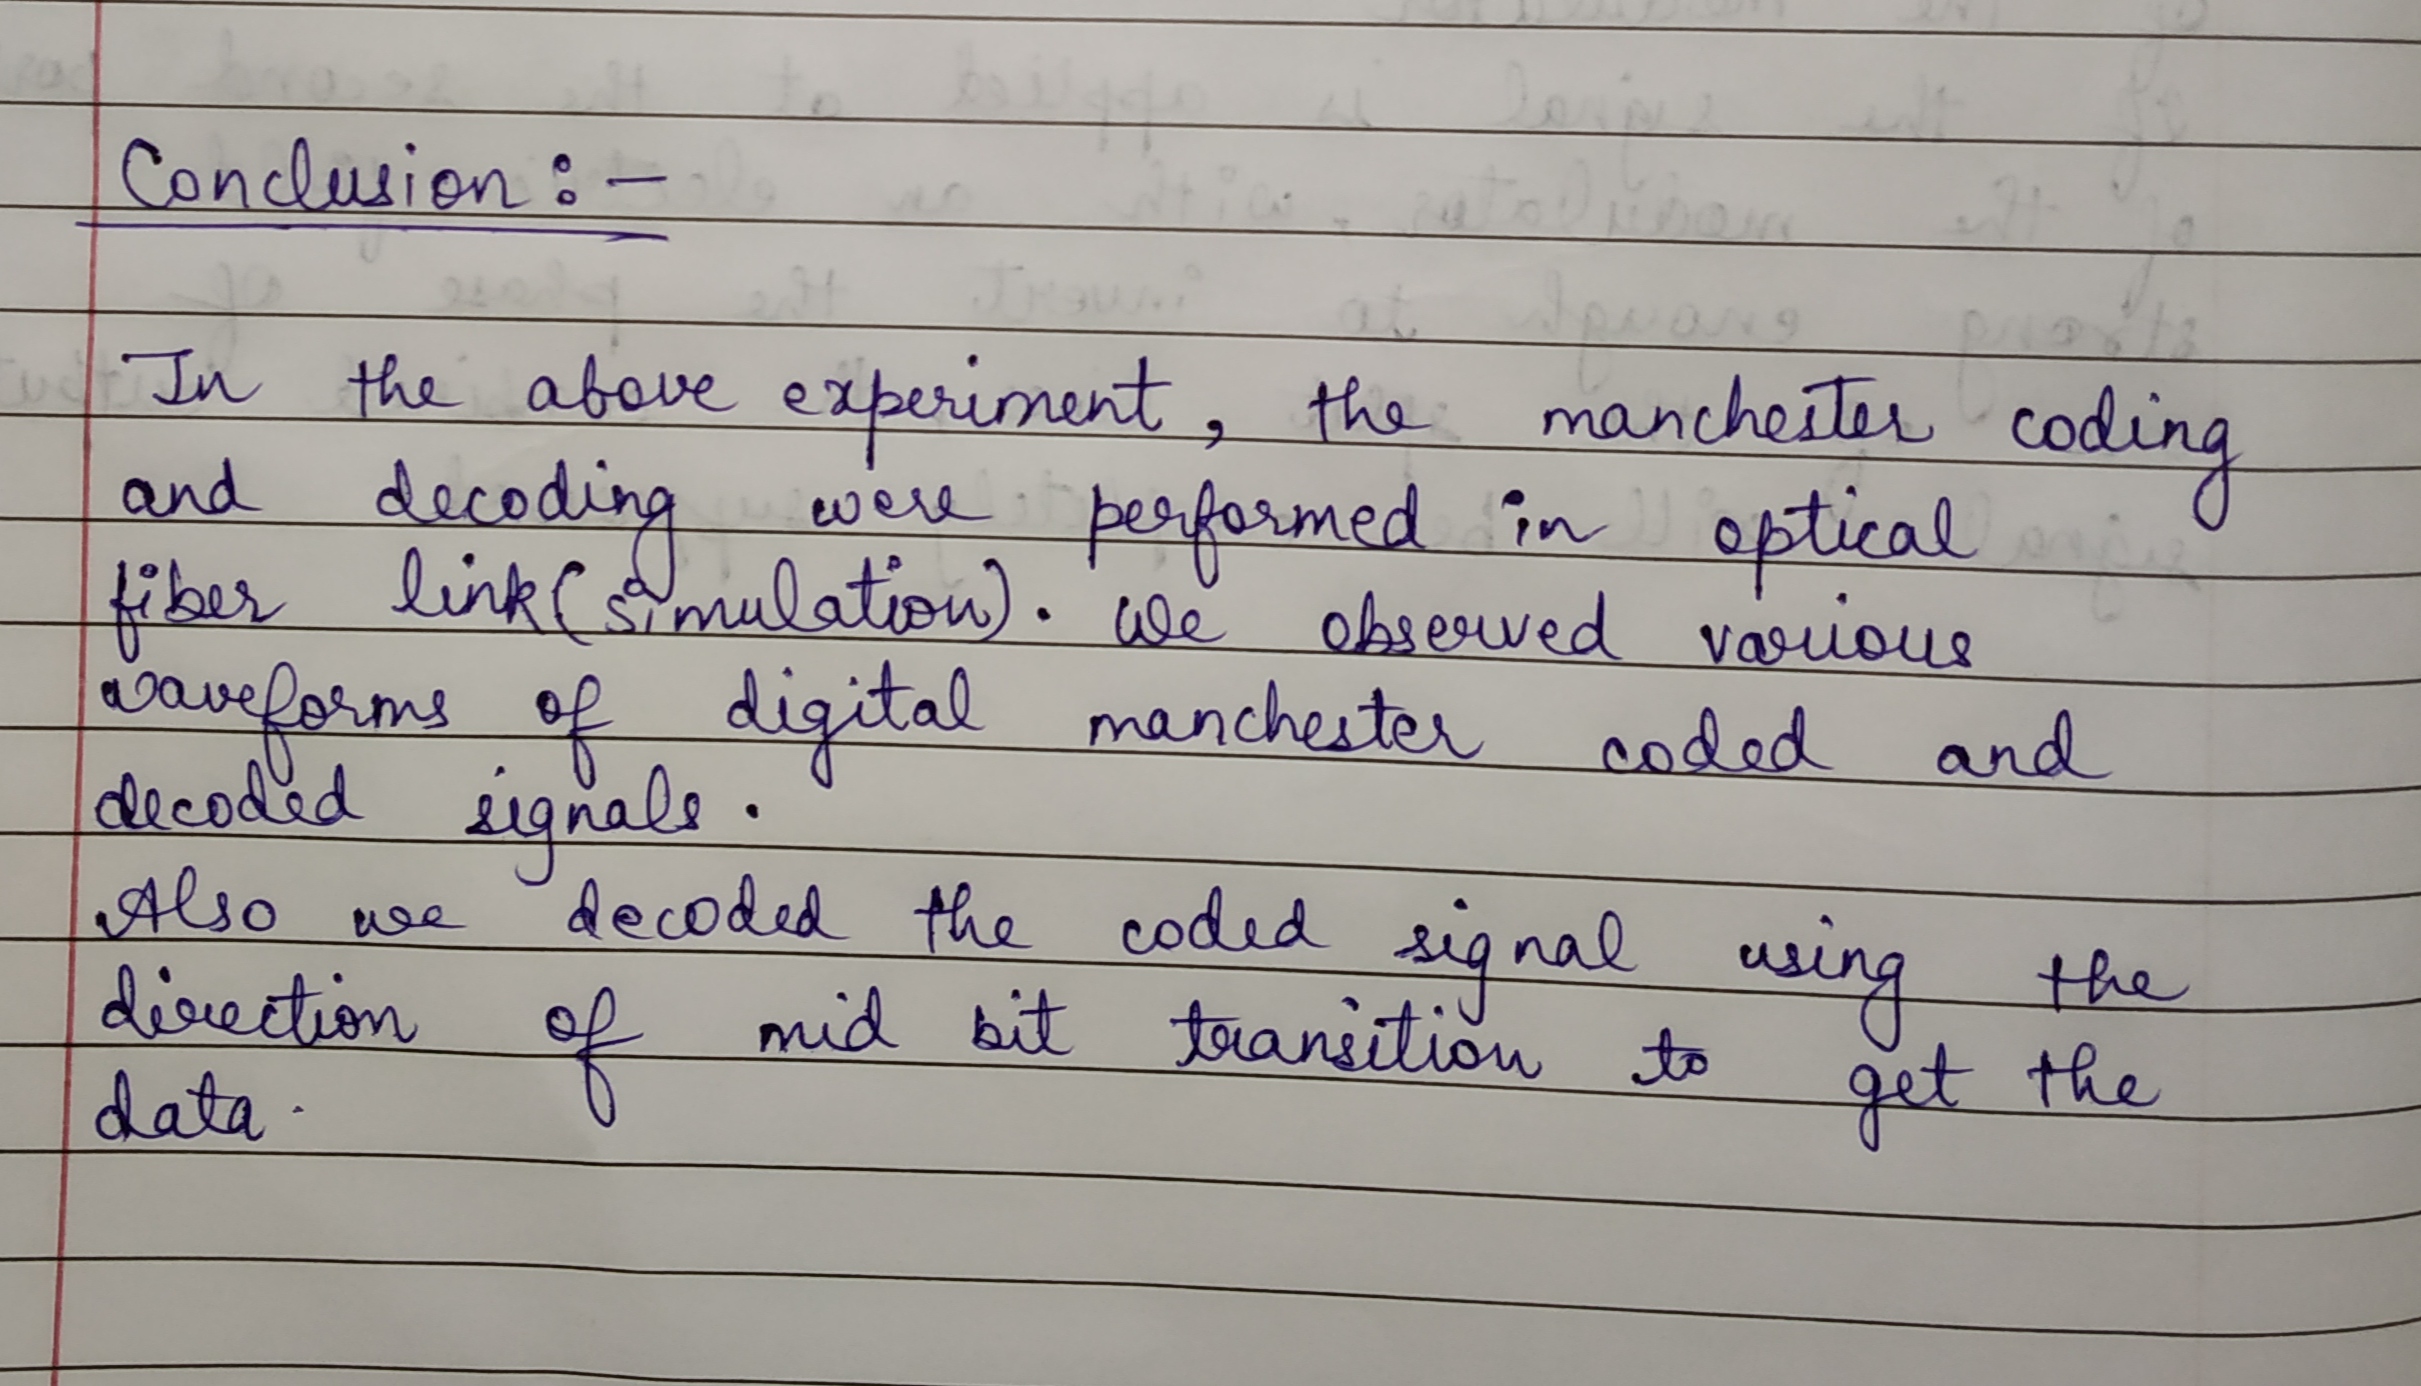 Conclusion :-
In the above experiment, the manchester coding
and decoding were performed in optical
fiber link(simulation). We observed various
waveforms of digital manchester coded and
decoded signals.
Also we decoded the coded signal using the
direction of mid bit transition to get the
data.